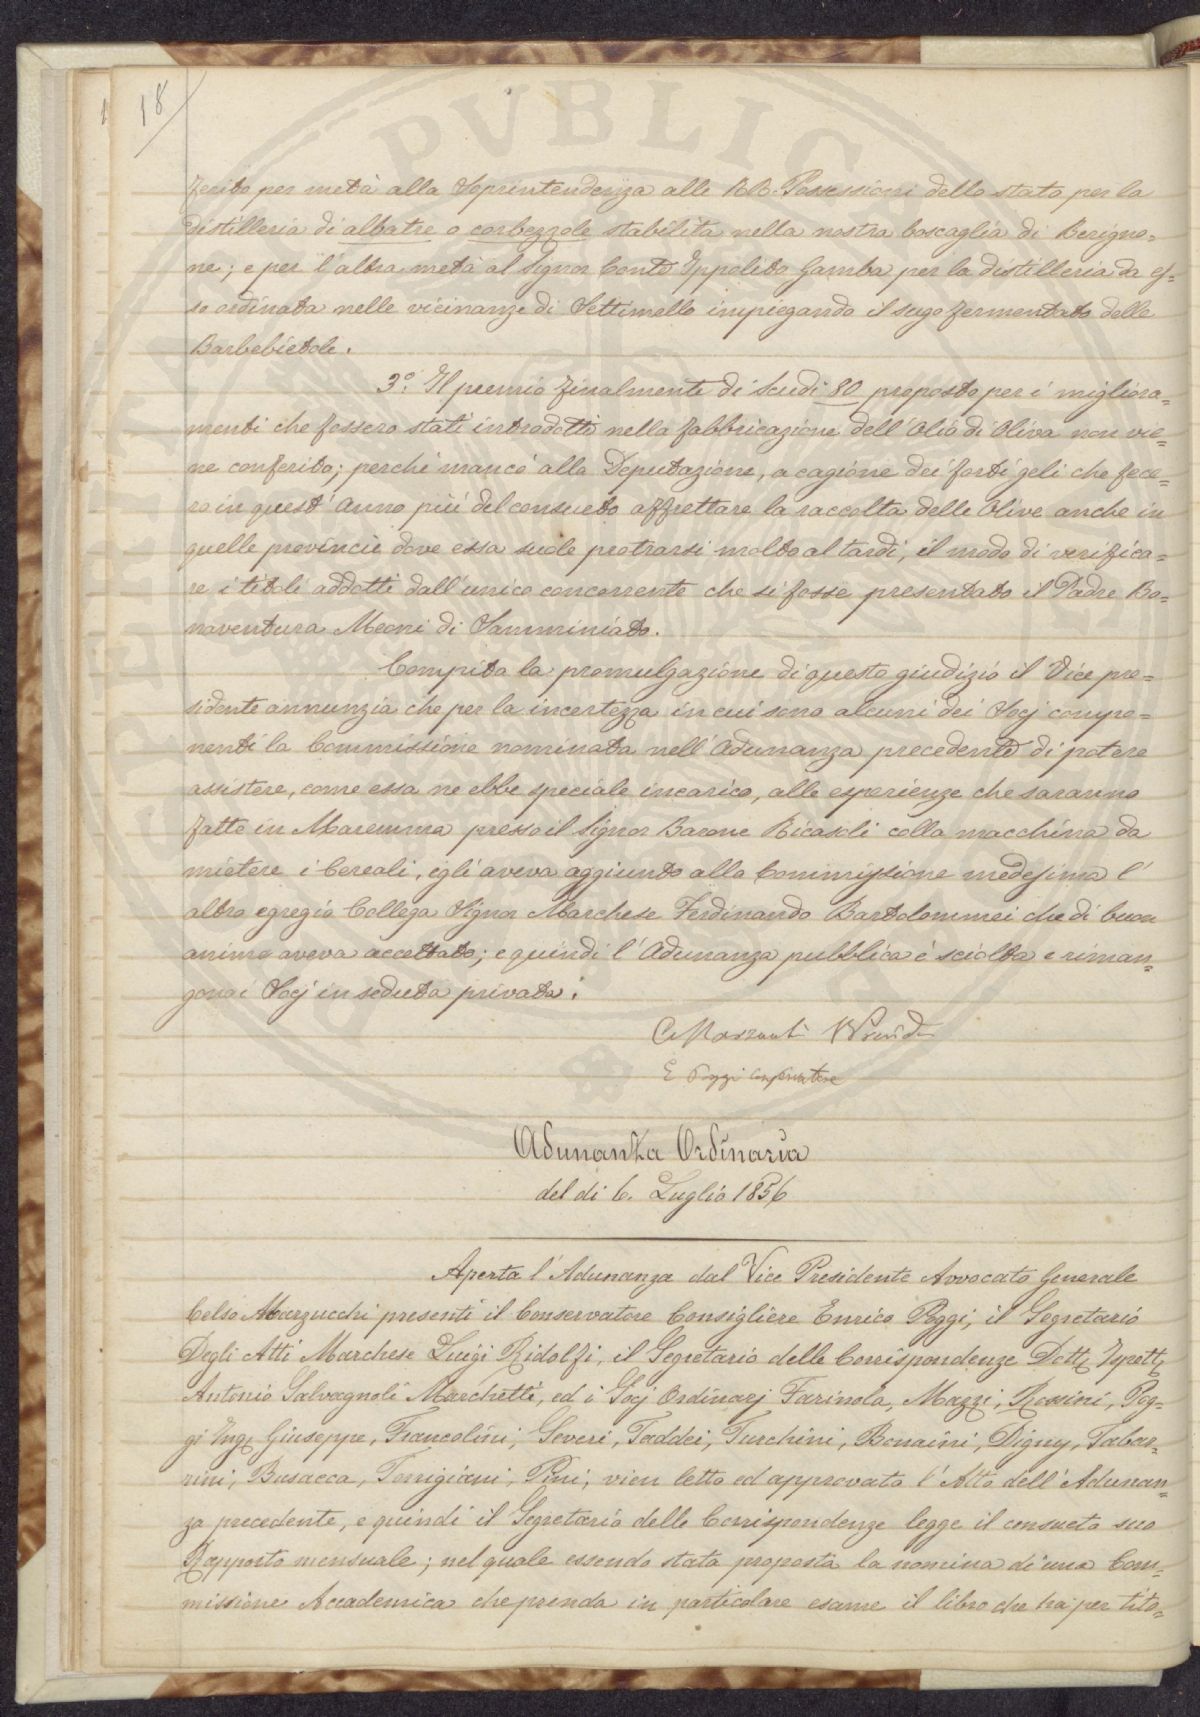 18
ferito per metà alla Soprintendenza alle RR. Possessioni dello stato per la
distilleria di albatre o corbezzole stabilita nella nostra boscaglia di Berigno=
ne; e per l'altra metà al Signor Conte Ippolito Gamba per la distilleria da es=
so ordinata nelle vicinanze di Settimello impiegando il sugo fermentato delle
Barbebietole.
3.° Il premio finalmente di Scudi 80 proposto per i migliora=
menti che fossero stati introdotti nella fabbricazione dell'Olio di Oliva non vie=
ne conferito; perché mancò alla Deputazione, a cagione dei forti geli che fece=
ro in quest'anno più del consueto affrettare la raccolta delle Olive anche in
quelle provincie dove essa suole protrarsi molto al tardi, il modo di verifica=
re i titoli addotti dall'unico concorrente che si fosse presentato il Padre Bo=
naventura Meoni di Samminiato.
Compita la promulgazione di questo giudizio il Vice pre=
sidente annunzia che per la incertezza in cui sono alcuni dei Socj compo=
nenti la Commissione nominata nell'Adunanza precedente di potere
assistere, come essa ne ebbe speciale incarico, alle esperienze che saranno
fatte in Maremma presso il Signor Barone Ricasoli colla macchina da
mietere i Cereali, egli aveva aggiunto alla Commissione medesima l'
altro egregio Collega Signor Marchese Ferdinando Bartolommei che di buon
animo aveva accettato; e quindi l'Adunanza pubblica è sciolta e riman=
gono i Socj in seduta privata.
C Marzucchi VPresid
E Poggi Conservatore
Adunanza Ordinaria
del dì 6. Luglio 1856
Aperta l'Adunanza dal Vice Presidente Avvocato Generale
Celso Marzucchi presenti il Conservatore Consigliere Enrico Poggi, il Segretario
Degli Atti Marchese Luigi Ridolfi, il Segretario delle Corrispondenze Dott. Ispett.
Antonio Salvagnoli Marchetti, ed i Socj Ordinarj Farinola, Mazzi, Rossini, Pog=
gi Ing. Giuseppe, Francolini, Severi, Taddei, Turchini, Bonaini, Digny, Tabar=
rini, Busacca, Torrigiani, Pini; vien letto ed approvato l'Atto dell'Adunan=
za precedente, e quindi il Segretario delle Corrispondenze legge il consueto suo
Rapporto mensuale; nel quale essendo stata proposta la nomina di una Com=
missione Accademica che prenda in particolare esame il libro che ha per tito=